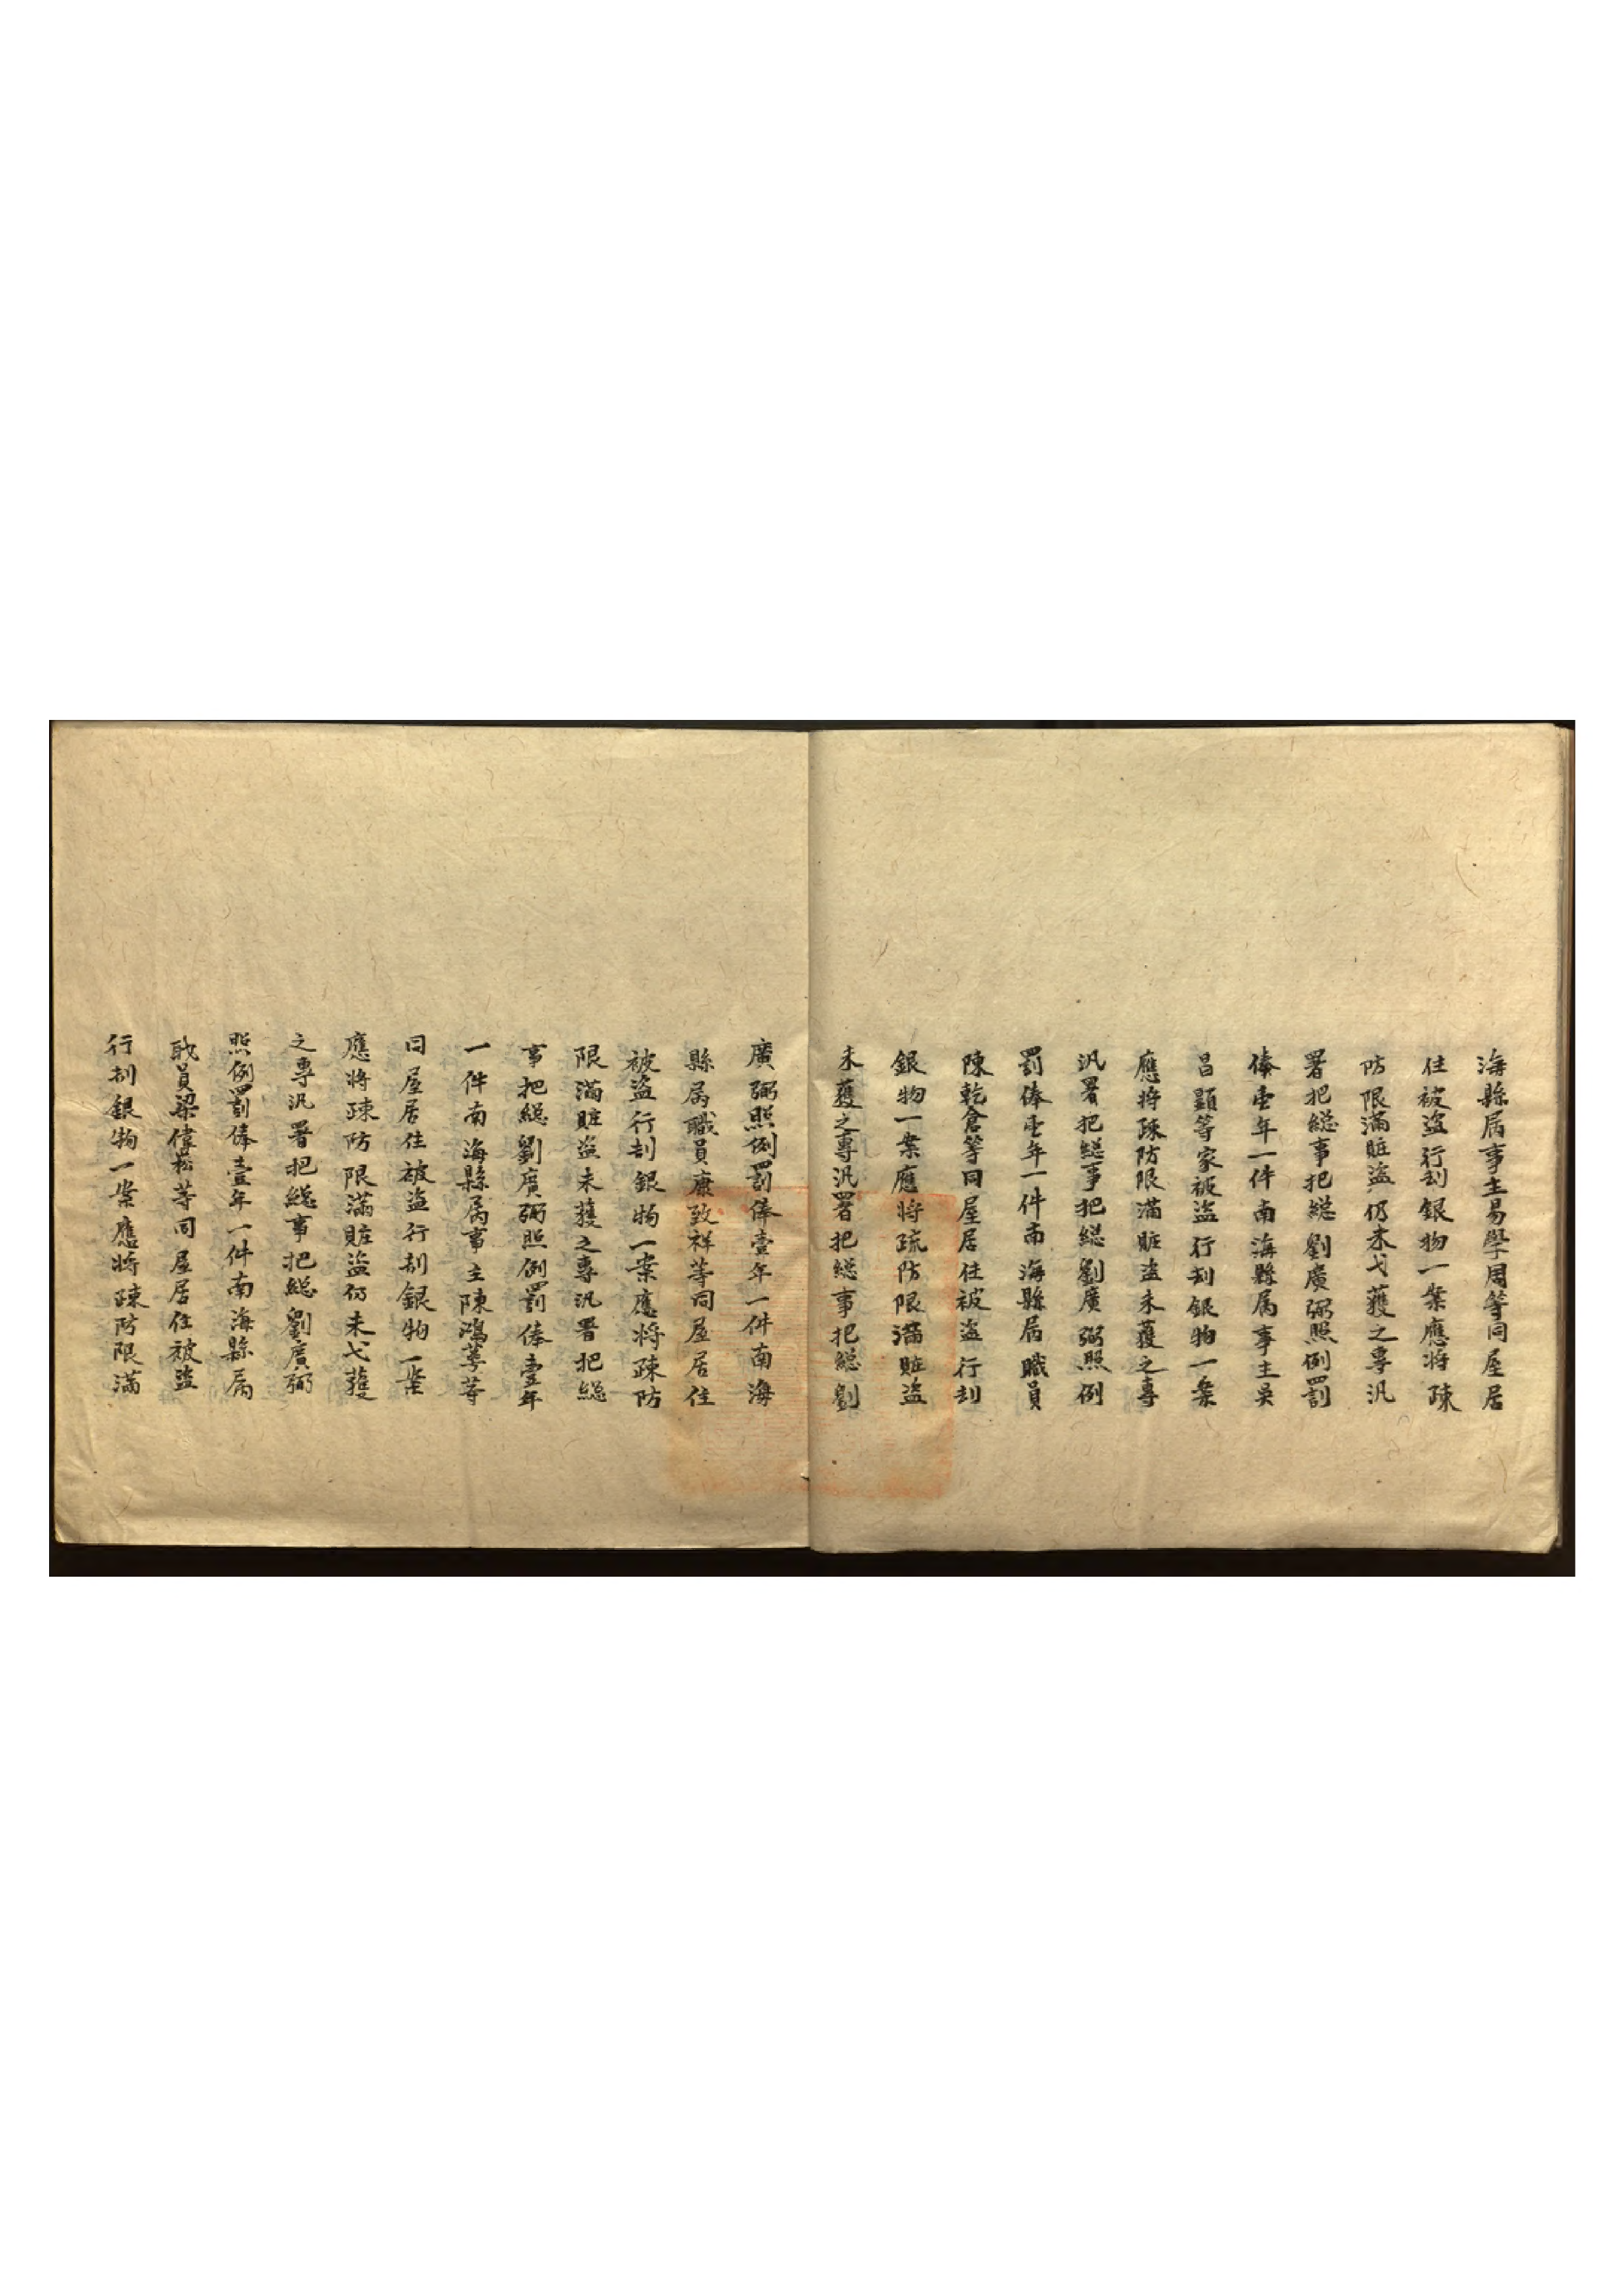 海縣属事主易學周等同屋居
住被盜行刦銀物一案應將踈
防限滿賍盜仍未弋獲之專汛
署把総事把総劉廣弼照例罰
俸壹年一件南海縣属事主吳
昌顕等家被盜行刦銀物一案
應将踈防限滿賍盜未獲之專
汛署把総事把総劉廣弼照例
罰俸壹年一件南海縣属職員
陳乾倉等同屋居住被盜行刦
銀物一案應將疏防限滿賍盜
未獲之專汛署把総事把総劉
廣弼照例罰俸壹年一件南海
縣属職員康致祥等同屋居住
被盜行刦銀物一案應將踈防
限滿賍盜未獲之專汛署把総
事把総劉廣弼照例罰俸壹年
一件南海縣属事主陳鴻蕚等
同屋居住被盜行刦銀物一案
應將踈防限滿賍盜仍未弋獲
之專汛署把総事把総劉廣弼
照例罰俸壹年一件南海縣属
職員梁偉崧等同屋居住被盜
行刦銀物一案應將踈防限滿